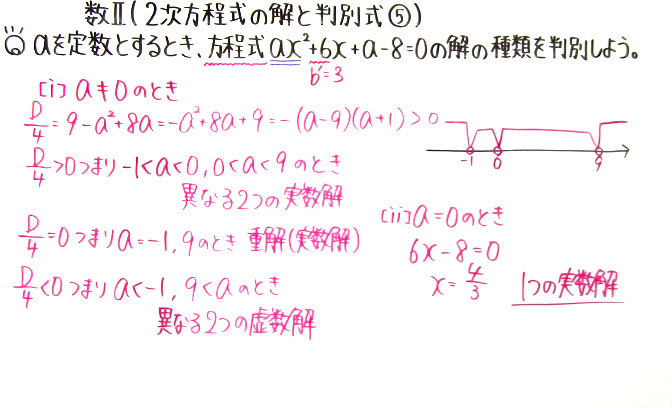 数Ⅱ(2次方程式の解と判別式⑤)
Q aを定数とするとき、方程式ax²+6x+a-8=0の解の種類を判別しよう。
b'=3
[i] a≠0のとき
D/4=9-a²+8a=-a²+8a+9=-(a-9)(a+1)>0
-1 0 9
D/4>0つまり-1<a<0, 0<a<9のとき
異なる2つの実数解
D/4=0つまりa=-1, 9のとき 重解(実数解)
D/4<0つまりa<-1, 9<aのとき
異なる2つの虚数解
[ii]a=0のとき
6x-8=0
x=4/3 1つの実数解